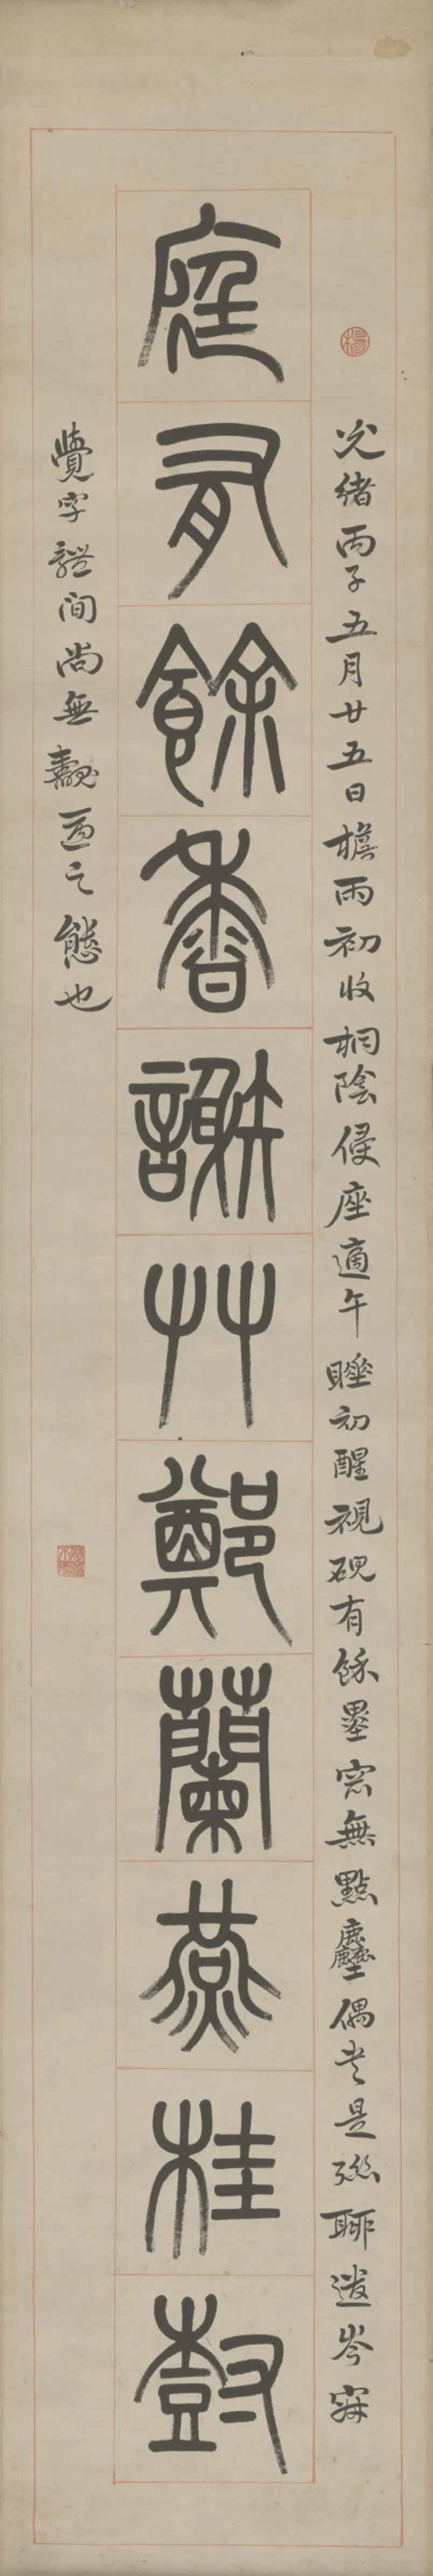 楊
光緒丙子五月廿五日檐雨初收桐陰侵座適午睡初醒視硯有餘墨窓無點塵偶書是聯聊遣岑寂
庭有餘香謝艸鄭蘭燕桂樹
覺字體間尚無逼之態也